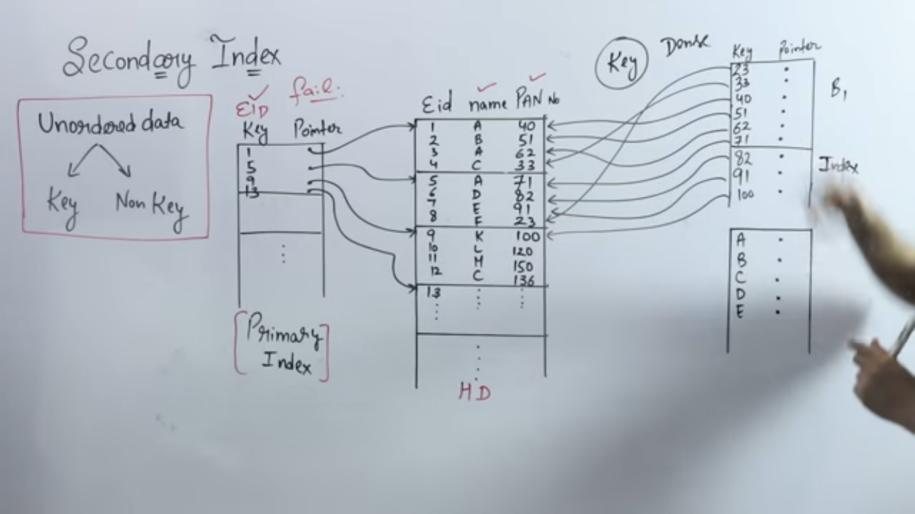 Secondary Index
Unordered data
Key Non Key
EID fail.
Key Pointer
1
5
9
13
[Primary Index]
Eid name PAN No
1 A 40
2 B 51
3 A 62
4 C 33
5 A 71
6 D 82
7 E 91
8 F 23
9 K 100
10 L 120
11 M 150
12 C 136
13
HD
Key Dense
Key Pointer
23
33
40
51
62
71
82
91
100
B1
Index
A
B
C
D
E